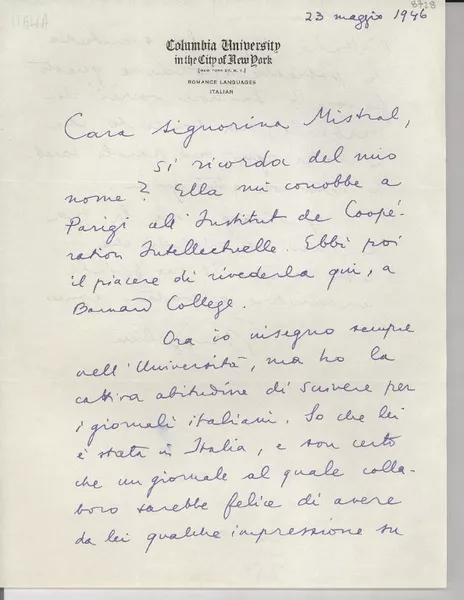 ITALIA
8718
23 maggio 1946
Columbia University
in the City of New York
[NEW YORK 27, N. Y.]
ROMANCE LANGUAGES
ITALIAN
Cara Signorina Mistral,
si ricorda del mio
nome? Ella mi conobbe a
Parigi all'Institut de Coopé-
ration Intellectuelle. Ebbi poi
il piacere di rivederla qui, a
Barnard College.
Ora io insegno sempre
nell'Università, ma ho la
cattiva abitudine di scrivere per
i giornali italiani. So che lei
è stata in Italia, e son certo
che un giornale al quale colla-
boro sarebbe felice di avere
da lei qualche impressione su